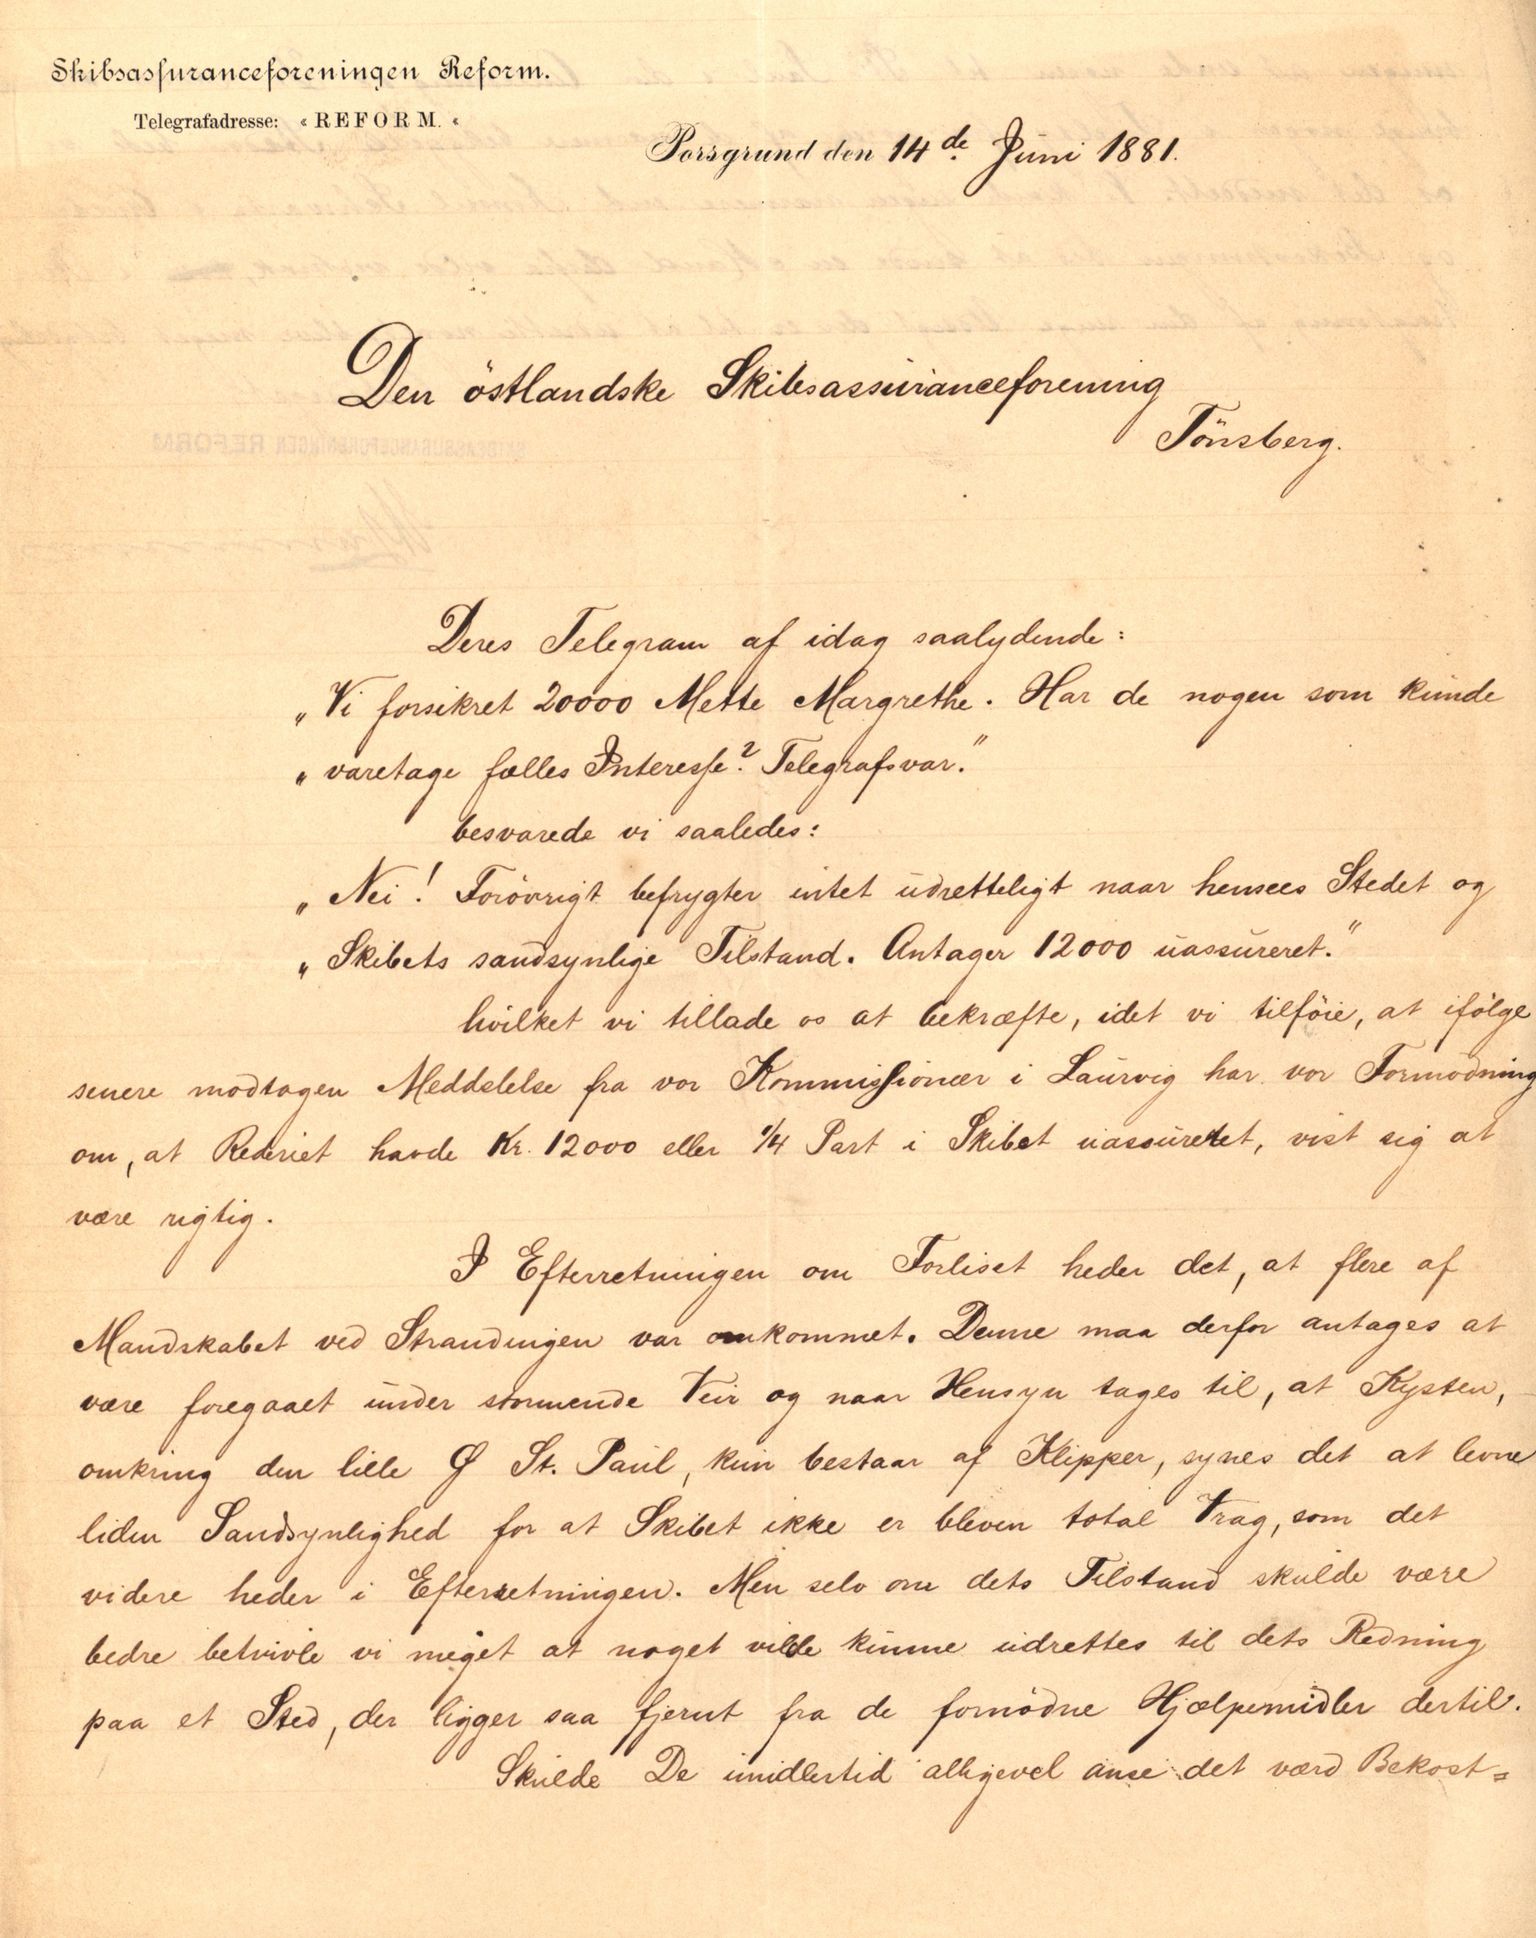 Skibsassuranceforeningen Reform.
Telegrafadresse: « REFORM. «
Porsgrund den 14de Juni 1881.
Den östlandske Skibsassuranceforening
Tönsberg.
SKIBSASSURANCEFORENINGEN REFORM
Deres Telegram af idag saalydende:
„Vi forsikret 20000 Mette Margrethe. Har de nogen som kunde
„varetage fælles Interesse? Telegrafsvar."
besvarede vi saaledes:
„Nei! Forövrigt befrygter intet udretteligt naar hensees Stedet og
„Skibets sandsynlige Tilstand. Antager 12000 uassureret."
hvilket vi tillade os at bekræfte, idet vi tilföie, at ifölge
senere modtagen Meddelelse fra vor Kommissionær i Laurvig har vor Formodning
om, at Rederiet havde Kr. 12000 eller 1/4 Part i Skibet uassureret, vist sig at
være rigtig.
I Efterretningen om Forliset heder det, at flere af
Mandskabet ved Strandingen var omkommet. Denne maa derfor antages at
være foregaaet under stormende Veir og naar Hensyn tages til, at Kysten,
omkring den lille Ø St. Paul, kun bestaar af Klipper, synes det at levne
liden Sandsynlighed for at Skibet ikke er bleven total Vrag, som det
videre heder i Efterretningen. Men selv om dets Tilstand skulde være
bedre betvivle vi meget at noget vilde kunne udrettes til dets Redning
paa et Sted, der ligger saa fjernt fra de fornödne Hjælpemidler dertil.
Skulde De imidlertid alligevel anse det værd Bekost=